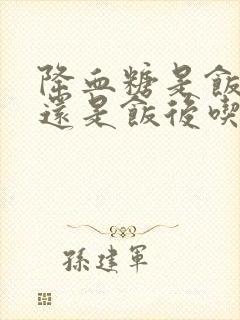 降血糖是飯
還是飯後喫
孫建軍